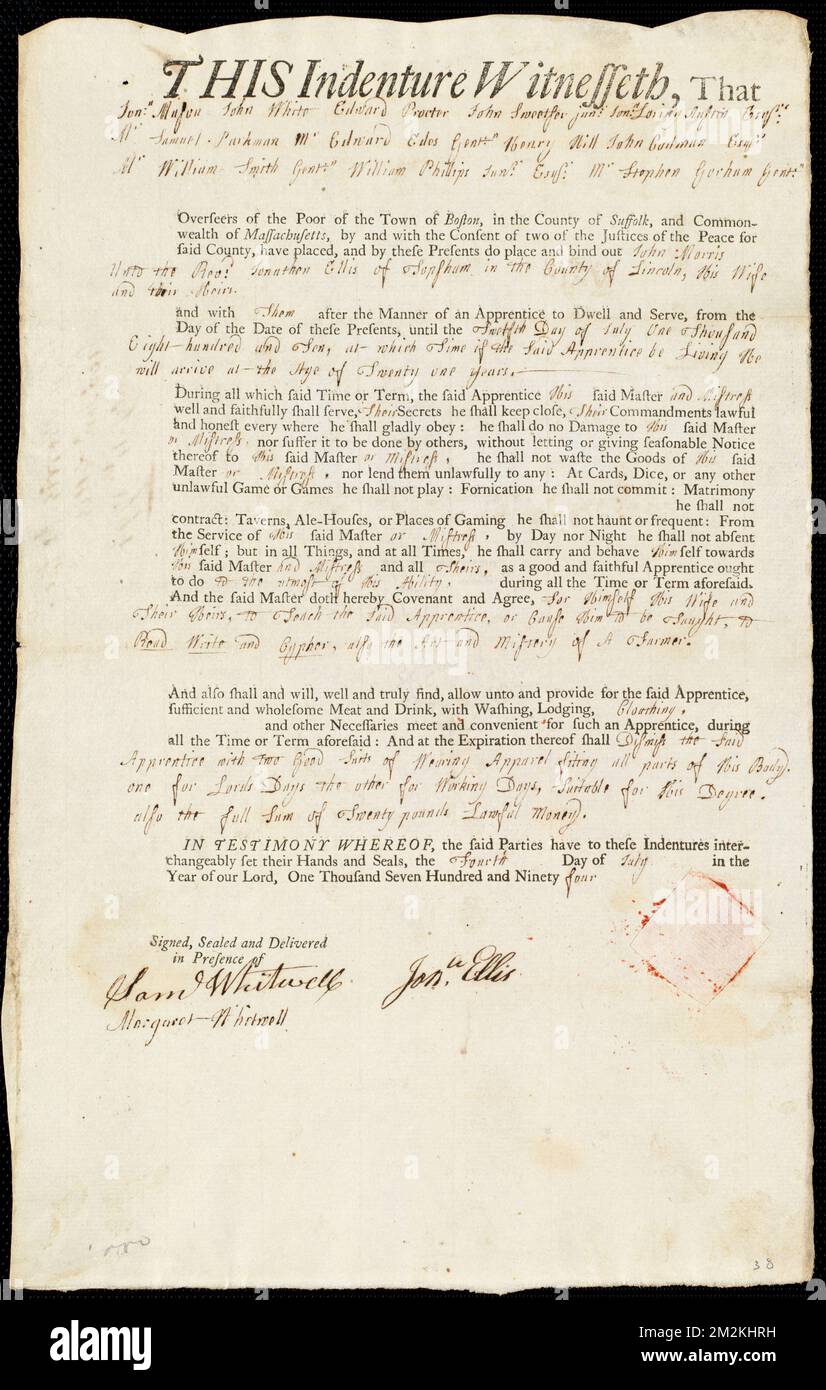 THIS Indenture Witneſſeth, That
Jonᵃ Mason John White Edward Procter John Sweetser junʳ Jonᵃ Loring Austin Esqʳˢ
Mʳ Samuel Parkman Mʳ Edward Edes Gentⁿ Henry Hill John Codman Esqʳˢ
Mʳ William Smith Gentⁿ William Phillips Junʳ Esqʳ Mʳ Stephen Gorham Gentⁿ
Overſeers of the Poor of the Town of Boſton, in the County of Suffolk, and Common-
wealth of Maſſachuſetts, by and with the Conſent of two of the Juſtices of the Peace for
ſaid County, have placed, and by theſe Preſents do place and bind out John Morris
Unto the Revᵈ Jonathan Ellis of Topsham in the County of Lincoln, His Wife
and their Heirs.
and with Them after the Manner of an Apprentice to Dwell and Serve, from the
Day of the Date of theſe Preſents, until the Twelfth Day of July One Thousand
Eight hundred and Ten, at which Time if the Said Apprentice be Living He
will arrive at the Age of Twenty one years.
During all which ſaid Time or Term, the ſaid Apprentice His ſaid Maſter and Mistress
well and faithfully ſhall ſerve, Their Secrets he ſhall keep cloſe, Their Commandments lawful
and honeſt every where he ſhall gladly obey: he ſhall do no Damage to His ſaid Maſter
or Mistress, nor ſuffer it to be done by others, without letting or giving ſeaſonable Notice
thereof to His ſaid Maſter or Mistress, he ſhall not waſte the Goods of His ſaid
Maſter or Mistress, nor lend them unlawfully to any: At Cards, Dice, or any other
unlawful Game or Games he ſhall not play: Fornication he ſhall not commit: Matrimony
he ſhall not
contract: Taverns, Ale-Houſes, or Places of Gaming he ſhall not haunt or frequent: From
the Service of His ſaid Maſter or Mistress, by Day nor Night he ſhall not abſent
Himſelf; but in all Things, and at all Times, he ſhall carry and behave Himſelf towards
His ſaid Maſter and Mistress and all Theirs, as a good and faithful Apprentice ought
to do to the utmost of His Ability, during all the Time or Term aforeſaid.
And the ſaid Maſter doth hereby Covenant and Agree, for Himself His Wife and
Their Heirs, to Teach the Said Apprentice, or Cause Him to be Taught, to
Read Write and Cypher, also the Art and Mistery of A Farmer.
And alſo ſhall and will, well and truly find, allow unto and provide for the ſaid Apprentice,
ſufficient and wholeſome Meat and Drink, with Waſhing, Lodging, Cloathing,
and other Neceſſaries meet and convenient for ſuch an Apprentice, during
all the Time or Term aforeſaid: And at the Expiration thereof ſhall Dismiss the Said
Apprentice with two Good Suits of Wearing Apparel fiting all parts of His Body.
one for Lords Days the other for Working Days, Suitable for His Degree.
also the full Sum of Twenty pounds Lawful Money.
IN TESTIMONY WHEREOF, the ſaid Parties have to theſe Indentures inter-
changeably ſet their Hands and Seals, the Fourth Day of July in the
Year of our Lord, One Thouſand Seven Hundred and Ninety four
Signed, Sealed and Delivered
in Preſence of
Samˡ Whitwell Jonⁿ Ellis
Margaret Whitwell
38
alamy
Image ID: 2M2KHRH
www.alamy.com